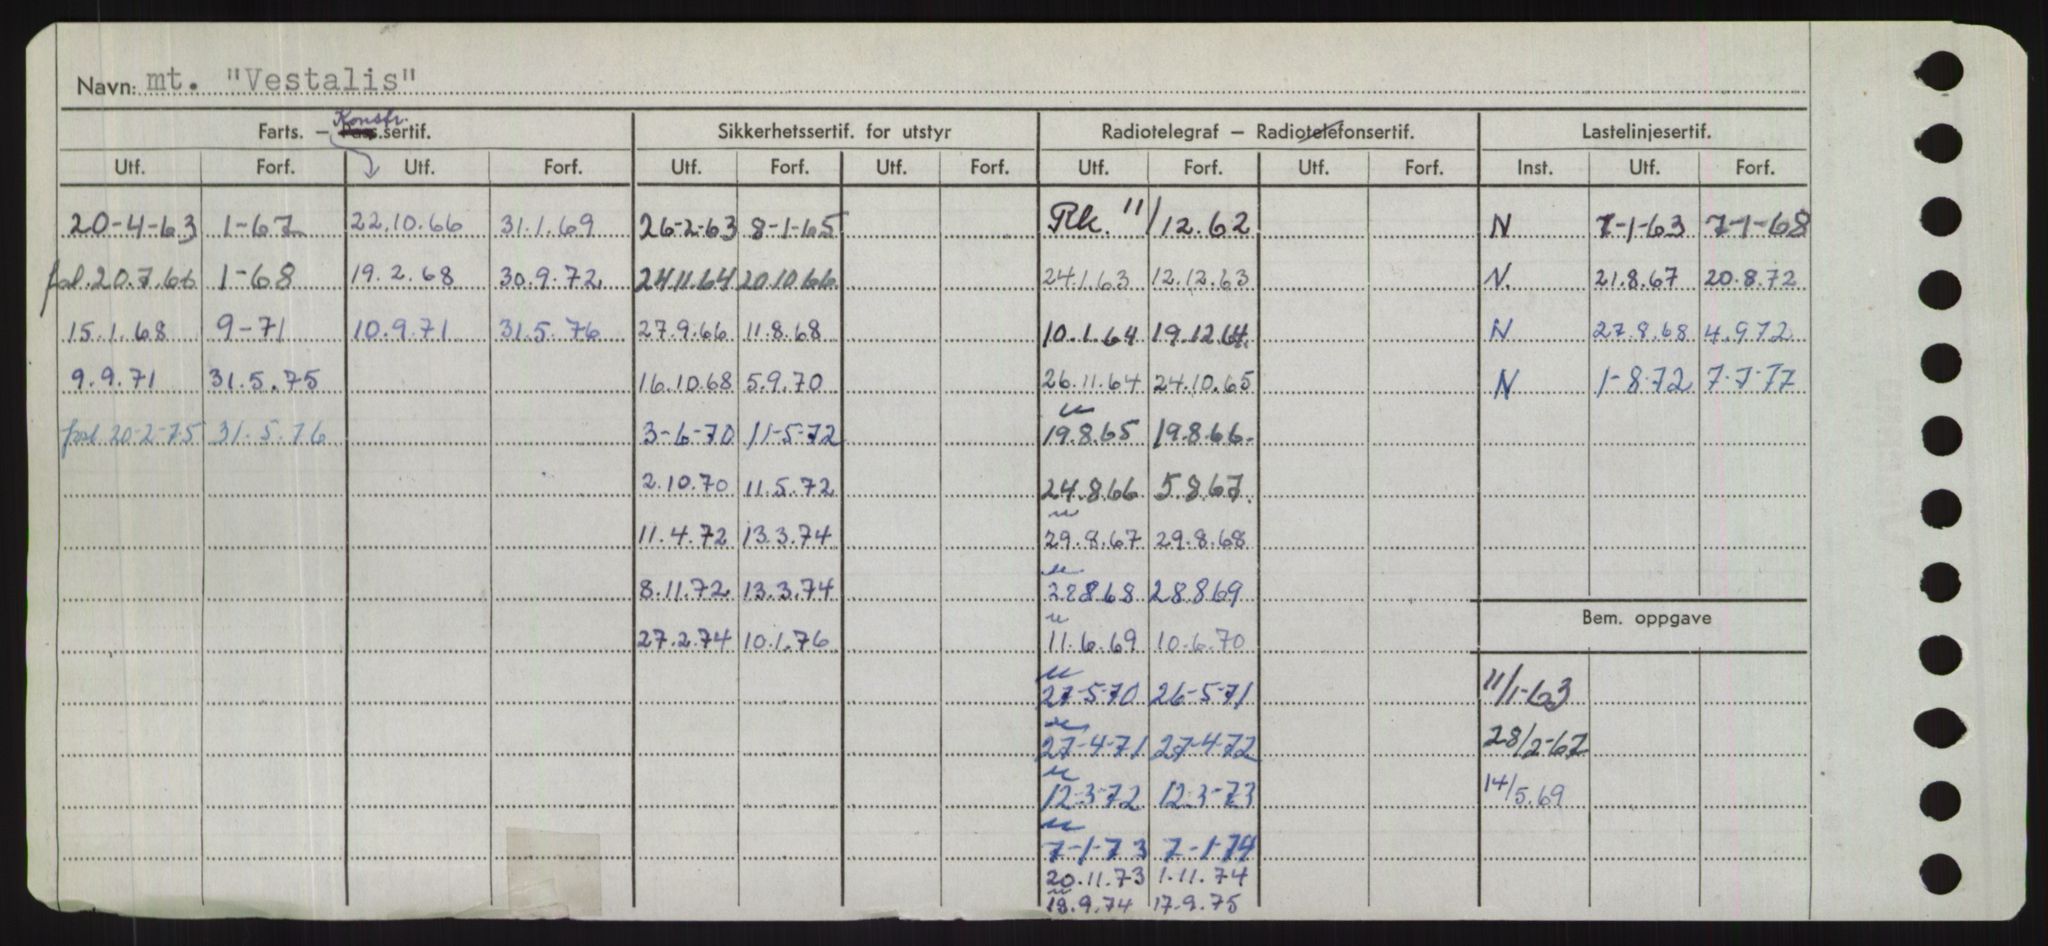 Navn: mt. "Vestalis"
Konstr.
Farts. – Pass.sertif. Sikkerhetssertif. for utstyr Radiotelegraf – Radiotelefonsertif. Lastelinjesertif.
Utf. Forf. Utf. Forf. Utf. Forf. Utf. Forf. Utf. Forf. Utf. Forf. Inst. Utf. Forf.
20-4-63 1-67 22.10.66 31.1.69 26-2-63 8-1-65 Rk. 11/12.62 N 7-1-63 7-1-68
fol. 20.7.66 1-68 19.2.68 30.9.72 24.11.64 20.10.66 24.1.63 12.12.63 N. 21.8.67 20.8.72
15.1.68 9-71 10.9.71 31.5.76 27.9.66 11.8.68 10.1.64 19.12.64. N 27.8.68 4.9.72
9.9.71 31.5.75 16.10.68 5.9.70 26.11.64 24.10.65 N 1-8.72 7-7-77
20-2-75 31.5.76 3-6-70 11-5-72 19.8.65 19.8.66.
2.10.70 11.5.72 24.8.66 5.8.67.
11.4.72 13.3.74 29.8.67 29.8.68
8.11.72 13.3.74 28.8.68 28.8.69
Bem. oppgave
27.2.74 10.1.76 11.6.69 10.6.70
27-5-70 26-5-71 11/1-63
27-4-71 27-4-72 28/2-67
12-3-72 12-3-73 14/5.69
7-1-73 7-1-74
20.11.73 1.11.74
18.9.74 17.9.75